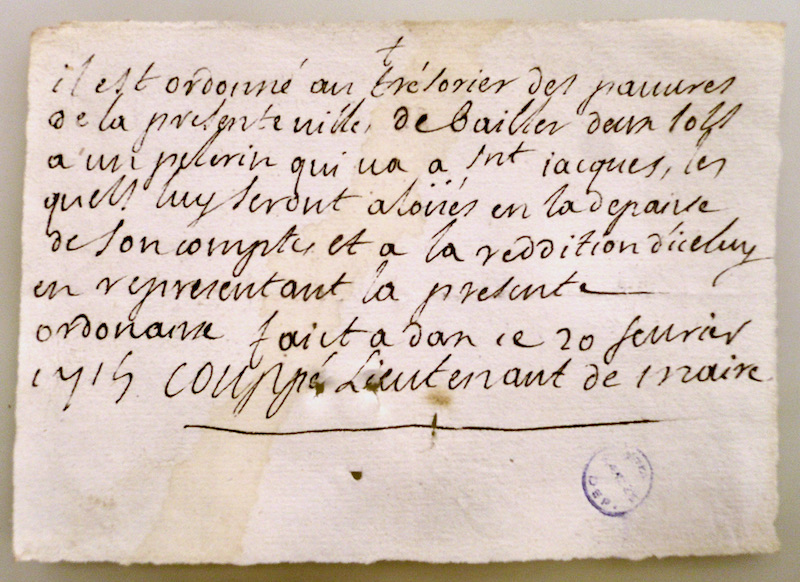 il est ordonné au trésorier des pauures
de la presente uille, de bailler deux sols
a un pelerin qui ua a Snt iacques, les
quels luy seront aloüés en la depanse
de son compte, et a la reddition d'iceluy
en representant la presente
ordonanse faict a dax ce 20 feurier
1715 Couppé Lieutenant de maire
DEP.